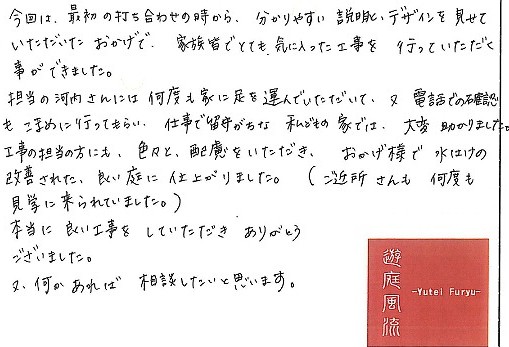 今回は、最初の打ち合わせの時から、分かりやすい説明と、デザインを見せて
いただいたおかげで、家族皆でとても気に入った工事を行っていただく
事ができました。
担当の河内さんには何度も家に足を運んでいただいて、又電話での確認
もこまめに行ってもらい、仕事で留守がちな私どもの家では、大変助かりました。
工事の担当の方にも、色々と、配慮をいただき、おかげ様で水はけの
改善された、良い庭に仕上がりました。(ご近所さんも何度も
見学に来られていました。)
本当に良い工事をしていただきありがとう
ございました。
又、何かあれば相談したいと思います。
遊庭風流
-Yutei Furyu-